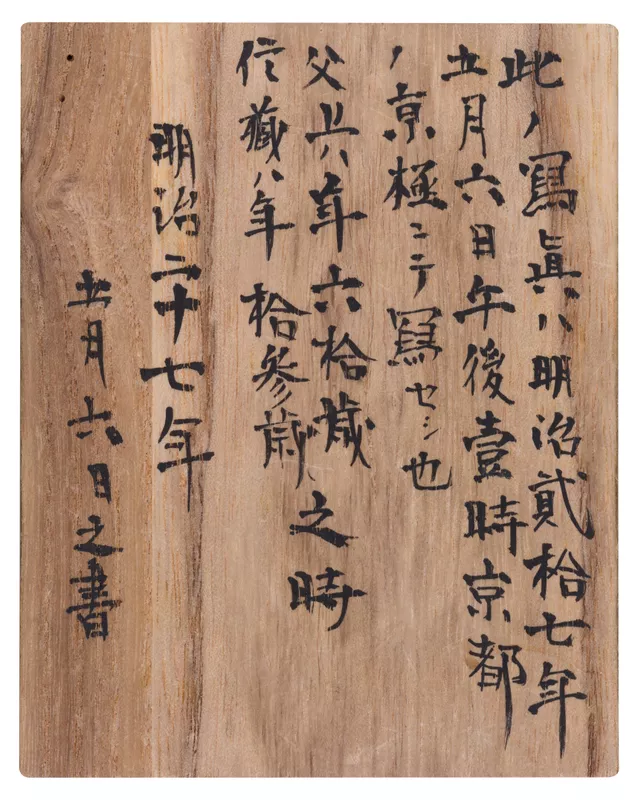 此ノ寫眞ハ明治貳拾七年
五月六日午後壹時京都
ノ京極ニテ寫セシ也
父ハ年六拾歳
信藏ハ年拾參歳
之時
明治二十七年
五月六日之書